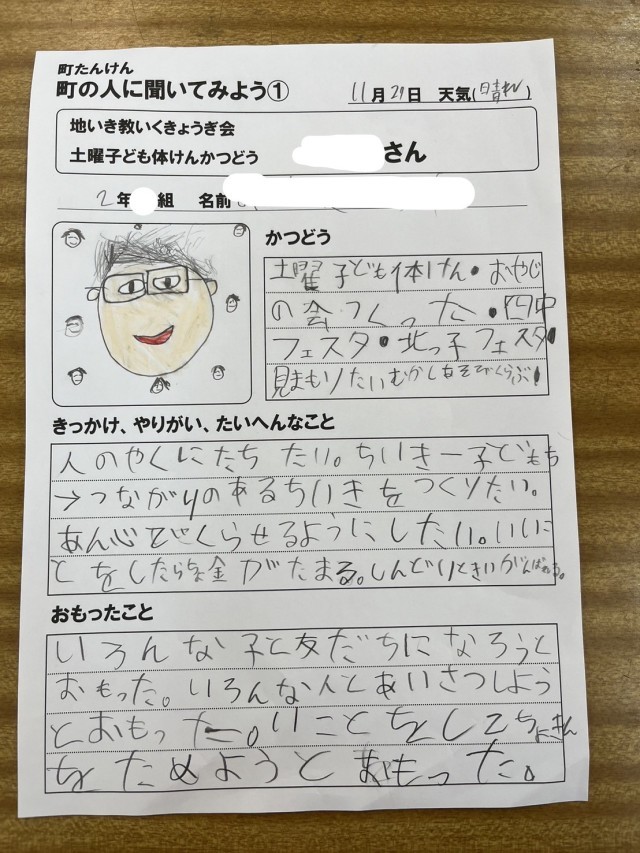 町たんけん
町の人に聞いてみよう① 11月29日 天気(晴れ)
地いき教いくきょうぎ会
土曜子ども体けんかつどう さん
2年 組 名前
かつどう
土曜子ども体けん・おやじ
の会つくった・四中
フェスタ・北っ子フェスタ・
見まもりたいむかしあそびくらぶ
きっかけ、やりがい、たいへんなこと
人のやくにたちたい。ちいきー子どもたち
→つながりのあるちいきをつくりたい。
あん心でくらせるようにしたい。いいこ
とをしたらちょ金がたまる。しんどいときいがんばれる。
おもったこと
いろんな子と友だちになろうと
おもった。いろんな人とあいさつしよう
とおもった。いことをしてちょきん
をためようとおもった。